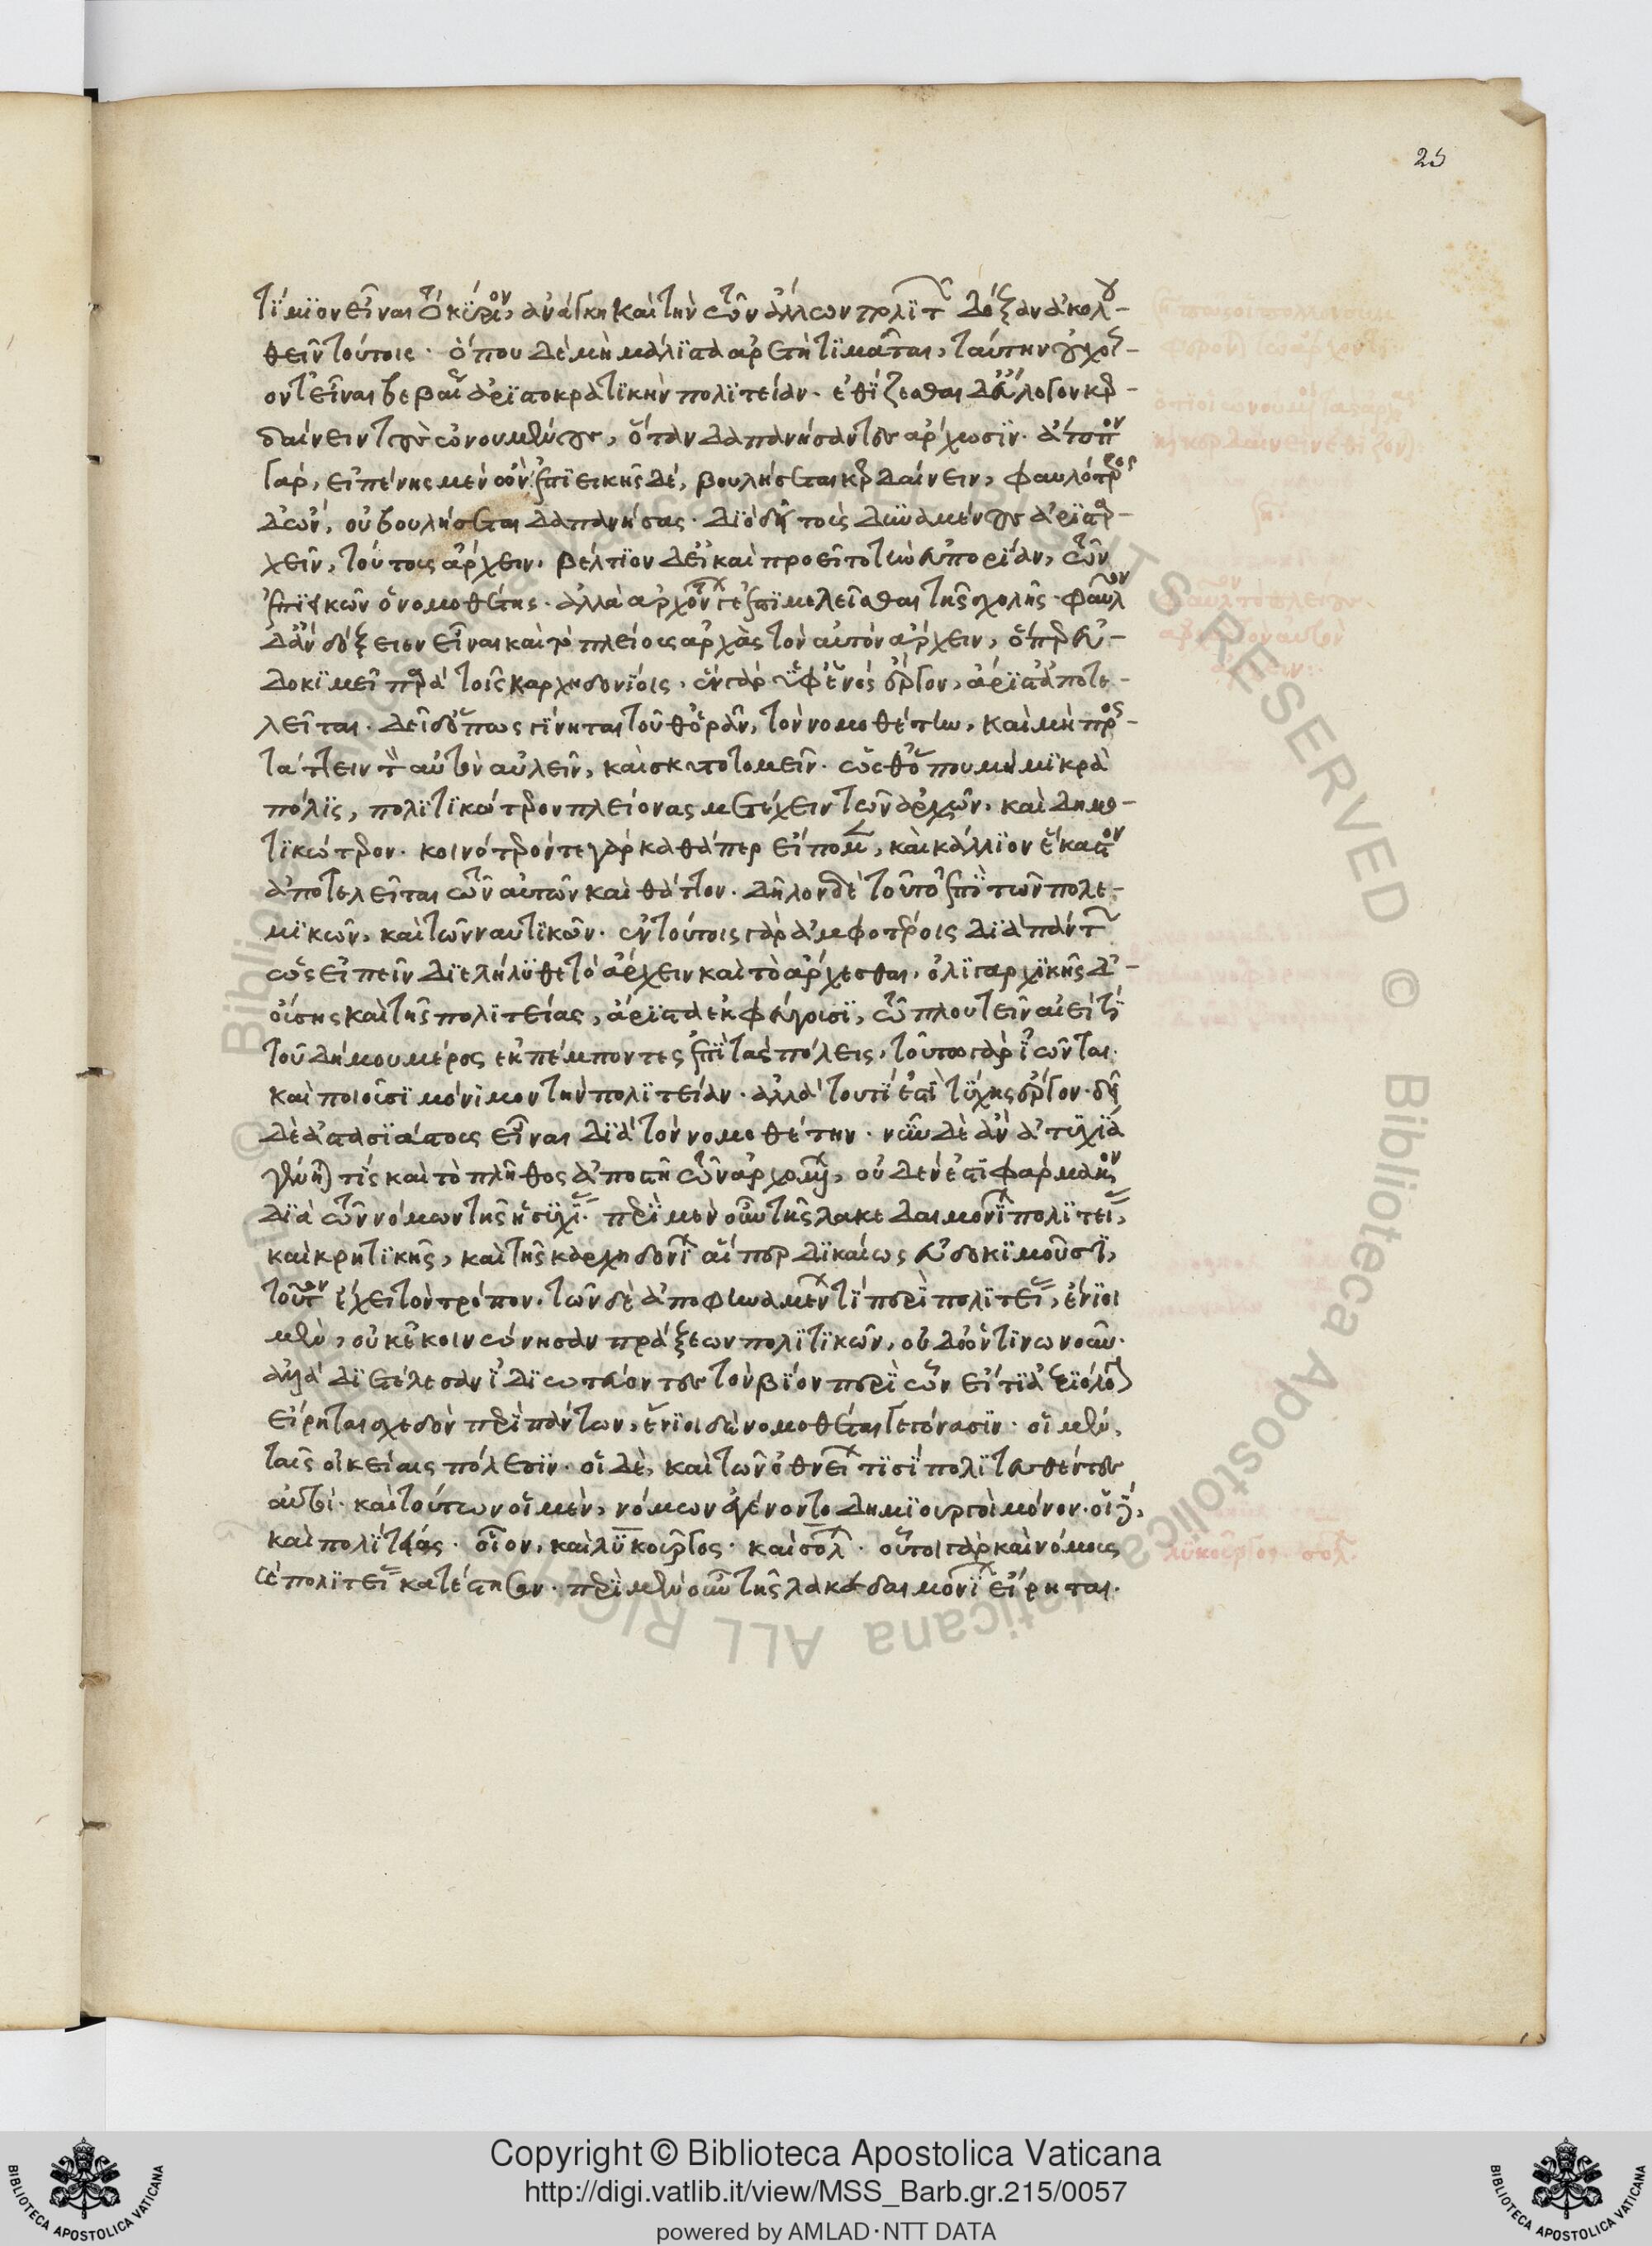 τίμιον εἶναι τὸ κύριον, ἀνάγκη καὶ τὴν τῶν ἄλλων πολιτῶν δόξαν ἀκολου-
θεῖν τούτοις· ὅπου δὲ μὴ μάλιστα ἀρετὴ τιμᾶται, ταύτην οὐχ οἷ-
όντ' εἶναι βεβαίως ἀριστοκρατικὴν πολιτείαν· ἐθίζεσθαι δ' εὔλογον κερ-
δαίνειν τοὺς ὠνουμένους, ὅταν δαπανήσαντες ἄρχωσιν· ἄτοπον
γὰρ, εἰ πένης μὲν ὢν ἐπιεικὴς δὲ, βουλήσεται κερδαίνειν, φαυλότερος
δ' ὢν, οὐ βουλήσεται δαπανήσας· διὸ δεῖ τοὺς δυναμένους ἄριστ' ἀρ-
χεῖν, τούτους ἄρχειν, βέλτιον δ' εἰ καὶ προεῖτο τὴν εὐπορίαν, τῶν
ἐπιεικῶν ὁ νομοθέτης· ἀλλὰ ἀρχόντων γε ἐπιμελεῖσθαι τῆς σχολῆς· φαῦλον
δ' ἂν δόξειεν εἶναι καὶ τὸ πλείους ἀρχὰς τὸν αὐτὸν ἄρχειν, ὅπερ εὐ-
δοκιμεῖ παρὰ τοῖς καρχηδονίοις, ἓν γὰρ ὑφ' ἑνὸς ἔργον, ἄριστ' ἀποτε-
λεῖται· δεῖ δ' ὅπως γίνηται τοῦθ' ὁρᾶν, τὸν νομοθέτην, καὶ μὴ προς-
τάττειν τὸν αὐτὸν αὐλεῖν, καὶ σκυτοτομεῖν· ὥσθ' ὅπου μὴ μικρὰ
πόλις, πολιτικώτερον πλείονας μετέχειν τῶν ἀρχῶν, καὶ δημο-
τικώτερον· κοινότερόν τε γὰρ καθάπερ εἴπομεν, καὶ κάλλιον ἕκαστον
ἀποτελεῖται τῶν αὐτῶν καὶ θᾶττον· δῆλον δὲ τοῦτο ἐπὶ τῶν πολε-
μικῶν, καὶ τῶν ναυτικῶν· ἐν τούτοις γὰρ ἀμφοτέροις διὰ πάντων
ὡς εἰπεῖν διελήλυθε τὸ ἄρχειν καὶ τὸ ἄρχεσθαι, ὀλιγαρχικῆς δ'
οὔσης καὶ τῆς πολιτείας, ἄριστα ἐκφεύγουσι, τῷ πλουτεῖν αἰεί τι
τοῦ δήμου μέρος ἐκπέμποντες ἐπὶ τὰς πόλεις, τούτῳ γὰρ ἰῶνται·
καὶ ποιοῦσι μόνιμον τὴν πολιτείαν· ἀλλὰ τουτί ἐστι τύχης ἔργον· δεῖ
δὲ ἀστασιάστους εἶναι διὰ τὸν νομοθέτην· νῦν δὲ ἂν ἀτυχία
γένηταί τις καὶ τὸ πλῆθος ἀποστῇ τῶν ἀρχομένων, οὐδὲν ἐστὶ φάρμακον
διὰ τῶν νόμων τῆς ἡσυχίας· περὶ μὲν οὖν τῆς λακεδαιμονίων πολιτείας,
καὶ κρητικῆς, καὶ τῆς καρχηδονίων αἵπερ δικαίως εὐδοκιμοῦσι,
τοῦτον ἔχει τὸν τρόπον· τῶν δὲ ἀποφηναμένων τι περὶ πολιτείας, ἔνιοι
μὲν, οὐκ ἐκοινώνησαν πράξεων πολιτικῶν, οὐδ' ὧντινωνοῦν·
ἀλλὰ διετέλεσαν ἰδιωτεύοντες τὸν βίον περὶ ὧν εἴ τι ἀξιόλογον
εἴρηται σχεδὸν περὶ πάντων, ἔνιοι δὲ νομοθέται γεγόνασιν· οἱ μὲν,
ταῖς οἰκείαις πόλεσιν· οἱ δὲ, καὶ τῶν ὀθνείων τισὶ πολιτευθέντες
αὐτοὶ· καὶ τούτων οἱ μὲν, νόμων ἐγένοντο δημιουργοὶ μόνον· οἱ δὲ,
καὶ πολιτείας· οἷον, καὶ λυκοῦργος· καὶ σόλων· οὗτοι γὰρ καὶ νόμους
καὶ πολιτείας κατέστησαν· περὶ μὲν οὖν τῆς λακεδαιμονίων εἴρηται·
φαῦλον τὸ πλείους
ἀρχὰς τὸν αὐτὸν
ἄρχειν:
λυκοῦργος· σόλ·
Copyright © Biblioteca Apostolica Vaticana
http://digi.vatlib.it/view/MSS_Barb.gr.215/0057
powered by AMLAD·NTT DATA
© Biblioteca Apostolica Vaticana ALL RIGHTS RESERVED
BIBLIOTECA APOSTOLICA VATICANA
BIBLIOTECA APOSTOLICA VATICANA